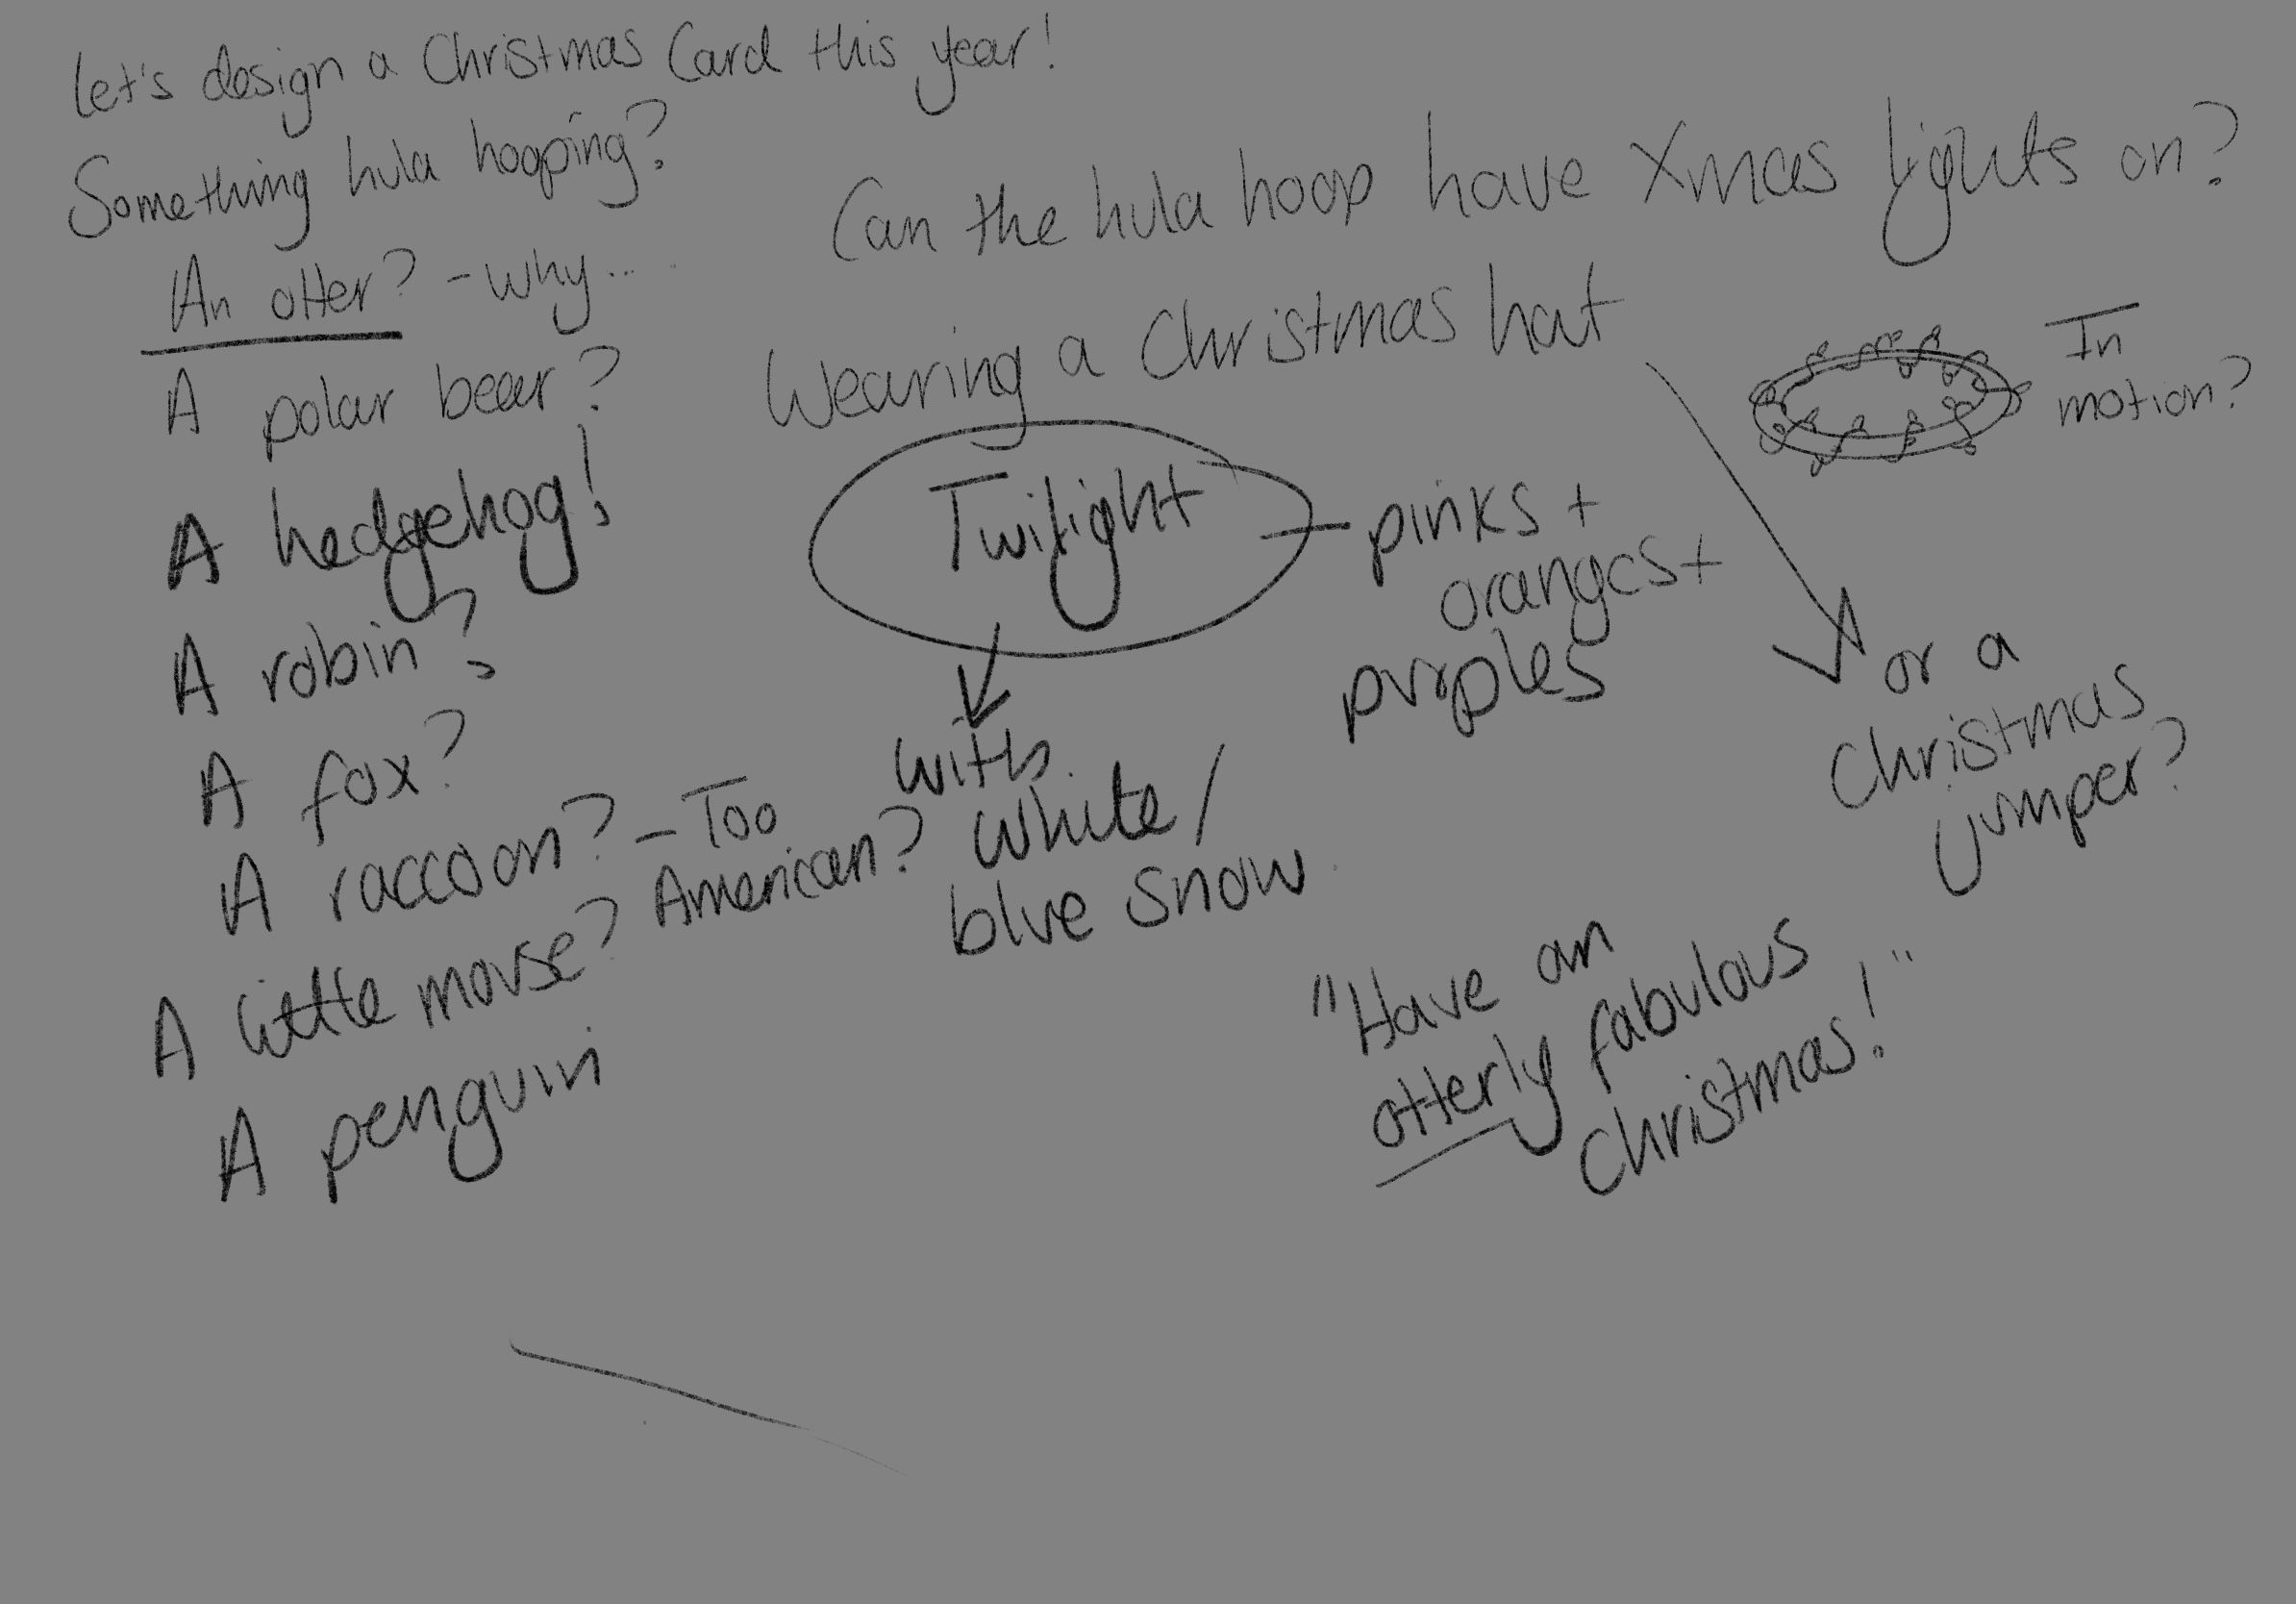 Let's design a Christmas Card this year!
Something hula hooping?
An otter? - why...
A polar bear?
A hedgehog!
A robin?
A fox?
A raccoon? - Too
American?
A little mouse?
A penguin
Can the hula hoop have Xmas lights on?
Wearing a Christmas hat
In
motion?
or a
Christmas
jumper?
Twilight
pinks +
oranges +
purples
with
white/
blue snow
"Have an
otterly fabulous
christmas!"